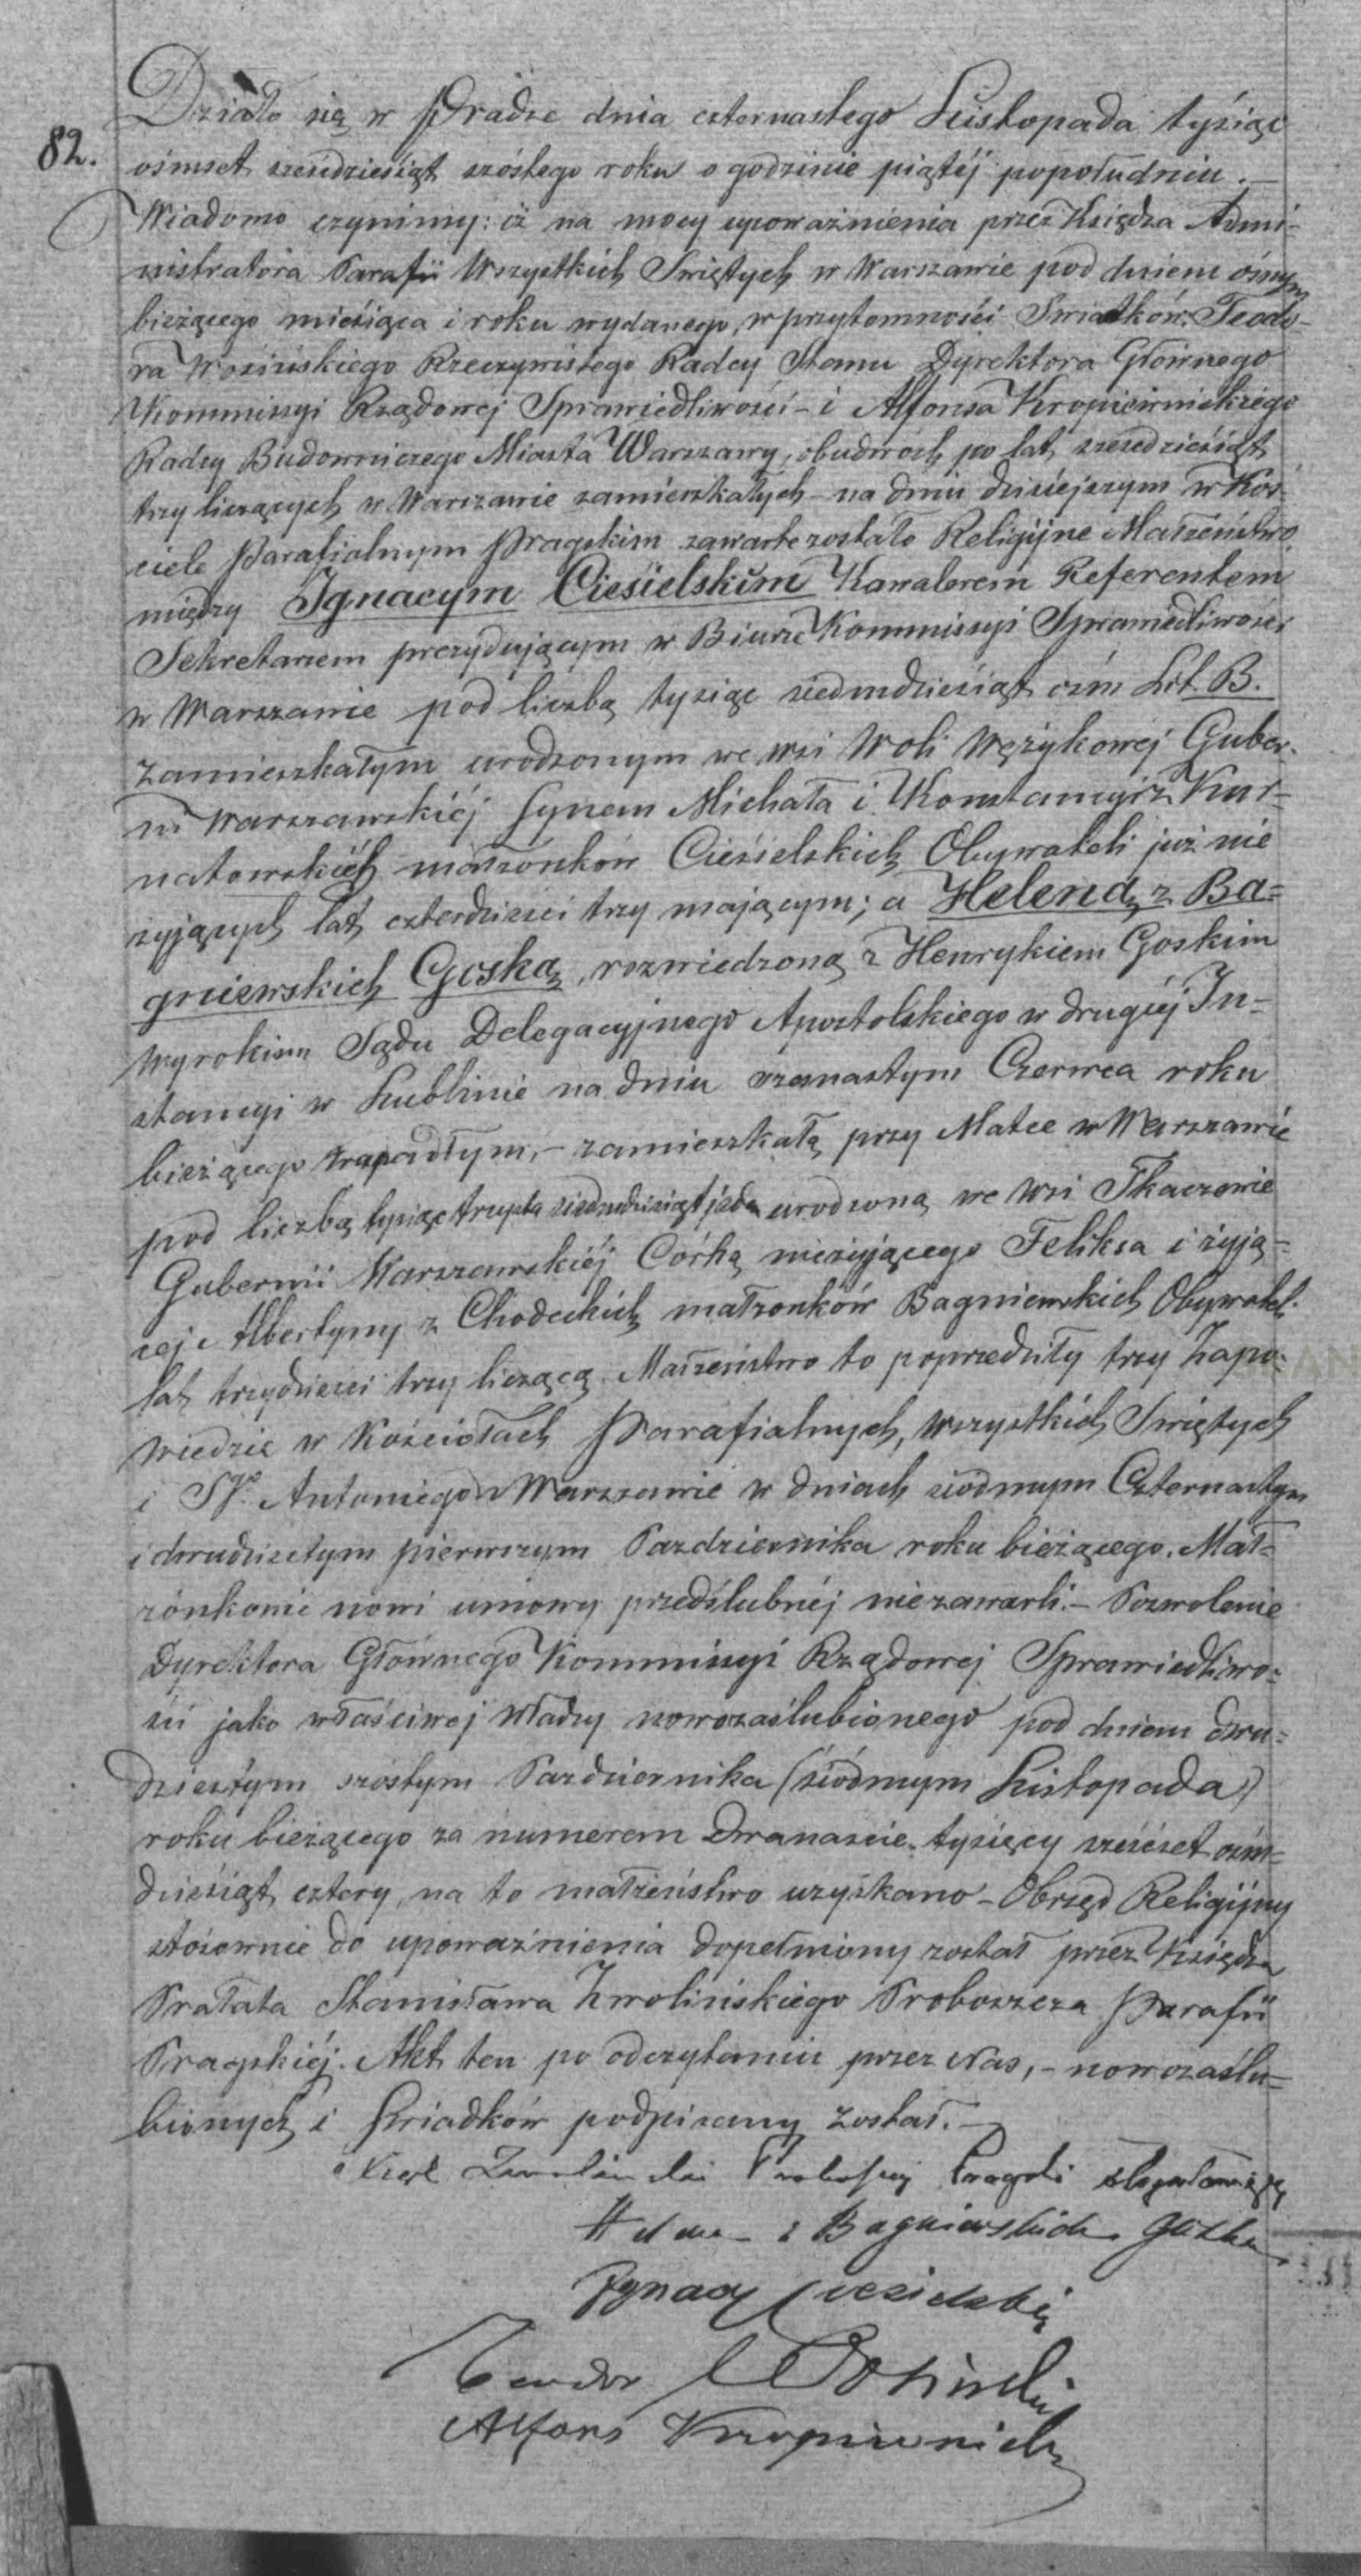 82.
Działo się w Pradze dnia czternastego Listopada tysiąc
ośmset sześćdziesiąt szóstego roku o godzinie piątéj popołudniu. —
Wiadomo czynimy: iż na mocy upoważnienia przez Księdza Admi-
nistratora Parafii Wszystkich Swiętych w Warszawie pod dniem ósmym
bieżącego miesiąca i roku wydanego, w przytomności Swiadków, Teodo-
ra Wosińskiego Rzeczywistego Radcy Stanu Dyrektora Głównego
Kommissyi Rządowej Sprawiedliwości – i Alfonsa Kropiwnickiego
Radcy Budowniczego Miasta Warszawy, obudwóch po lat sześćdziesiąt
trzy liczących w Warszawie zamieszkałych – na dniu dzisiejszym w Koś-
ciele Parafialnym Pragskim zawarte zostało Religijne Małżeństwo
między Ignacym Ciesielskim Kawalerem Referentem
Sekretarzem prezydującym w Biurze Kommissyi Sprawiedliwości
w Warszawie pod liczbą tysiąc siedmdziesiąt ośm Lit. B.
zamieszkałym urodzonym we wsi Woli Wężykowej Guber-
nii Warszawskiéj Synem Michała i Konstancyi z Kur-
natowskich małżonków Ciesielskich Obywateli już nie
żyjących lat czterdzieści trzy mającym; a Heleną z Ba-
gniewskich Goską, rozwiedzoną z Henrykiem Goskim
wyrokiem Sądu Delegacyjnego Apostolskiego w drugiéj In-
stancyi w Lublinie na dniu Czerwca roku
bieżącego zapadłym, – zamieszkałą przy Matce w Warszawie
pod liczbą tysiąc trzysta siedmdziesiąt jeden urodzoną we wsi Tkaczewie
Gubernii Warszawskiéj Córką nieżyjącego Feliksa i żyją-
cej Albertyny z Chodeckich małżonków Bagniewskich Obywateli
lat trzydzieści trzy liczącą. Małżeństwo to poprzedziły trzy Zapo-
wiedzie w Kościołach Parafialnych, Wszystkich Swiętych
i Sgo. Antoniego w Warszawie w dniach siódmym Czternastym
i dwudziestym pierwszym Pazdziernika roku bieżącego. Mał-
żonkowie nowi umowy przedślubnéj niezawarli. – Pozwolenie
Dyrektora Głównego Kommissyi Rządowej Sprawiedliwo-
ści jako właściwej władzy nowozaślubionego pod dniem dwu-
dziestym szóstym Pazdziernika (siódmym Listopada)
roku bieżącego za numerem dwanaście tysięcy sześćset ośm-
dziesiąt cztery, na to małżeństwo uzyskano – Obrzęd Religijny
stosownie do upoważnienia dopełniony został przez Księdza
Prałata Stanisława Zwolińskiego Proboszcza Parafii
Pragskiéj. Akt ten po odczytaniu przez Nas, – nowozaślu-
bionych i Swiadków podpisany został. —
Zwoliński Proboszcz Pragski
Helena z Bagniewskich Goska
Ignacy Ciesielski
Teodor Wosiński
Alfons Kropiwnicki